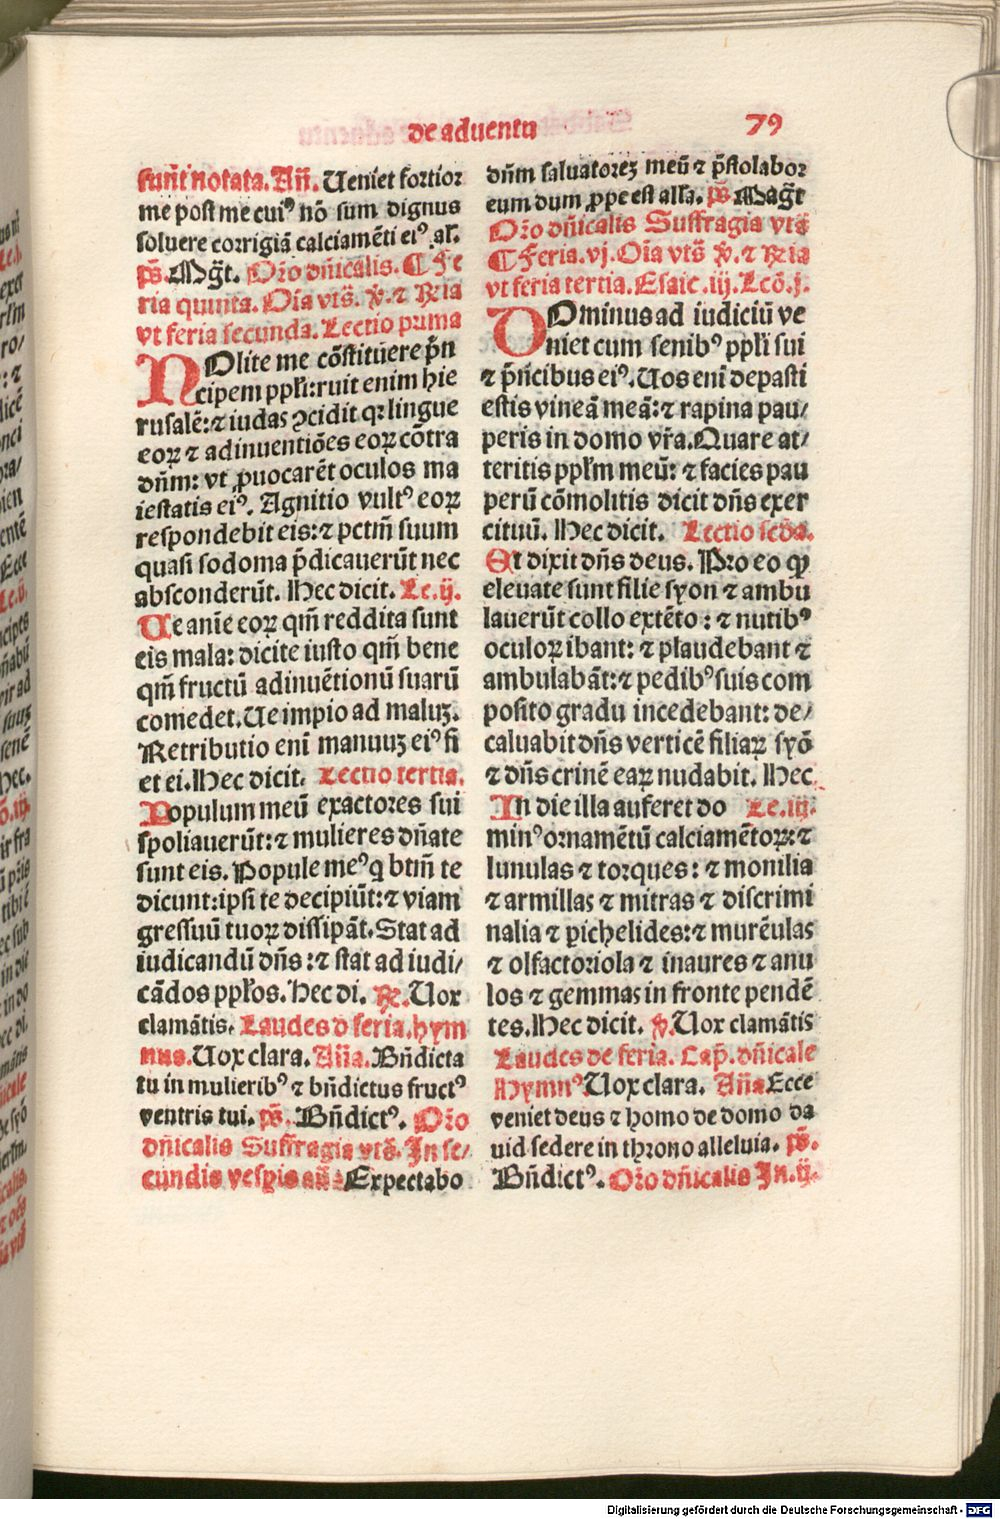 de aduentu
79
sunt notata. Añ. Ueniet fortior
me post me cuiꝰ nō sum dignus
soluere corrigiā calciamēti eiꝰ al'.
ps̄. Mg̃t. Or̃o dñicalis. ¶ Fe
ria quinta. Oĩa vts̃. V̉. ⁊ Rꝛia
vt feria secunda. Lectio prima
NOlite me cõstituere p̃n
cipem ppl̃i: ruit enim hie
rusalē: ⁊ iudas ꝯcidit qꝛ lingue
eoꝝ ⁊ adinuentiões eoꝝ cõtra
dñm: vt ꝓuocarēt oculos ma
iestatis eiꝰ. Agnitio vultꝰ eoꝝ
respondebit eis: ⁊ pctm̃ suum
quasi sodoma p̃dicauerūt nec
absconderūt. Hec dicit. Le. ij.
Ue anīe eoꝝ qm̃ reddita sunt
eis mala: dicite iusto qm̃ bene
qm̃ fructū adinuētionū suarū
comedet. Ue impio ad maluꝫ.
Retributio enī manuuꝫ eiꝰ fi
et ei. Hec dicit. Lectio tertia.
Populum meū exactores sui
spoliauerūt: ⁊ mulieres dñate
sunt eis. Popule meꝰ q btm̃ te
dicunt: ipsi te decipiūt: ⁊ viam
gressuū tuoꝝ dissipāt. Stat ad
iudicandū dñs: ⁊ stat ad iudi/
cādos ppl̃os. Hec di. R̃. Uox
clamātis. Laudes d feria. hym
nus. Uox clara. Añа. Bñdicta
tu in mulieribꝰ ⁊ bñdictus fructꝰ
ventris tui. ps̄. Bñdictꝰ. Or̃o
dñicalis Suffragia vts̃. In se/
cundis vespis añ. Expectabo
dñm saluatoreꝫ meū ⁊ p̃stolabor
eum dum ꝓpe est alľa. ps̄ Mag̃t
Or̃o dñicalis Suffragia vts̃
¶ Feria. vj. Oĩa vts̃ V̉. ⁊ Rꝛia
vt feria tertia. Esaie. iij. Lcõ. j.
DOminus ad iudiciū ve
niet cum senibꝰ ppl̃i sui
⁊ p̃ncibus eiꝰ. Uos enī depasti
estis vineā meā: ⁊ rapina pau/
peris in domo vr̃a. Quare at/
teritis ppl̃m meū: ⁊ facies pau
perū cõmolitis dicit dñs exer
cituū. Hec dicit. Lectio scd̃a.
Et dixit dñs deus. Pro eo ꝙ
eleuate sunt filie syon ⁊ ambu
lauerūt collo extēto: ⁊ nutibꝰ
oculoꝝ ibant: ⁊ plaudebant ⁊
ambulabāt: ⁊ pedibꝰ suis com
posito gradu incedebant: de/
caluabit dñs verticē filiaꝝ syō
⁊ dñs crinē eaꝝ nudabit. Hec
In die illa auferet do Le. iij.
minꝰ ornamētū calciamētoꝝ: ⁊
lunulas ⁊ torques: ⁊ monilia
⁊ armillas ⁊ mitras ⁊ discrimi
nalia ⁊ pichelides: ⁊ murēulas
⁊ olfactoriola ⁊ inaures ⁊ anu
los ⁊ gemmas in fronte pendē
tes. Hec dicit. V̉. Uox clamātis
Laudes de feria. Cap̃. dñicale
Hymnꝰ Uox clara. Añа Ecce
veniet deus ⁊ homo de domo da
uid sedere in throno alleluia. ps̄.
Bñdictꝰ. Or̃o dñicalis In. ij.
Digitalisierung gefördert durch die Deutsche Forschungsgemeinschaft - DFG